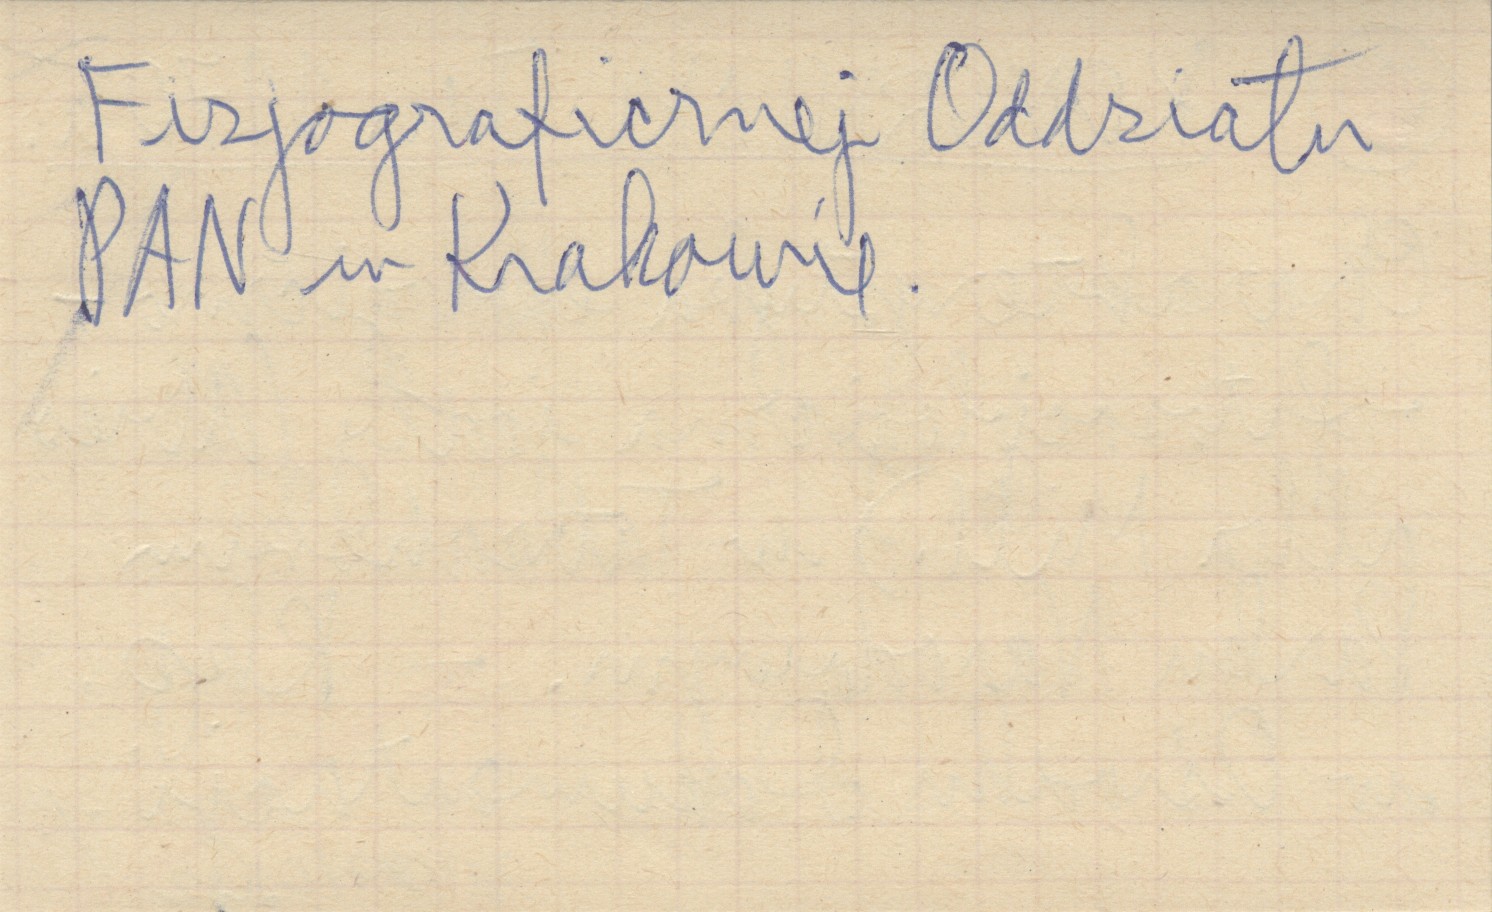 Fizjograficznej Oddziału
PAN w Krakowie.